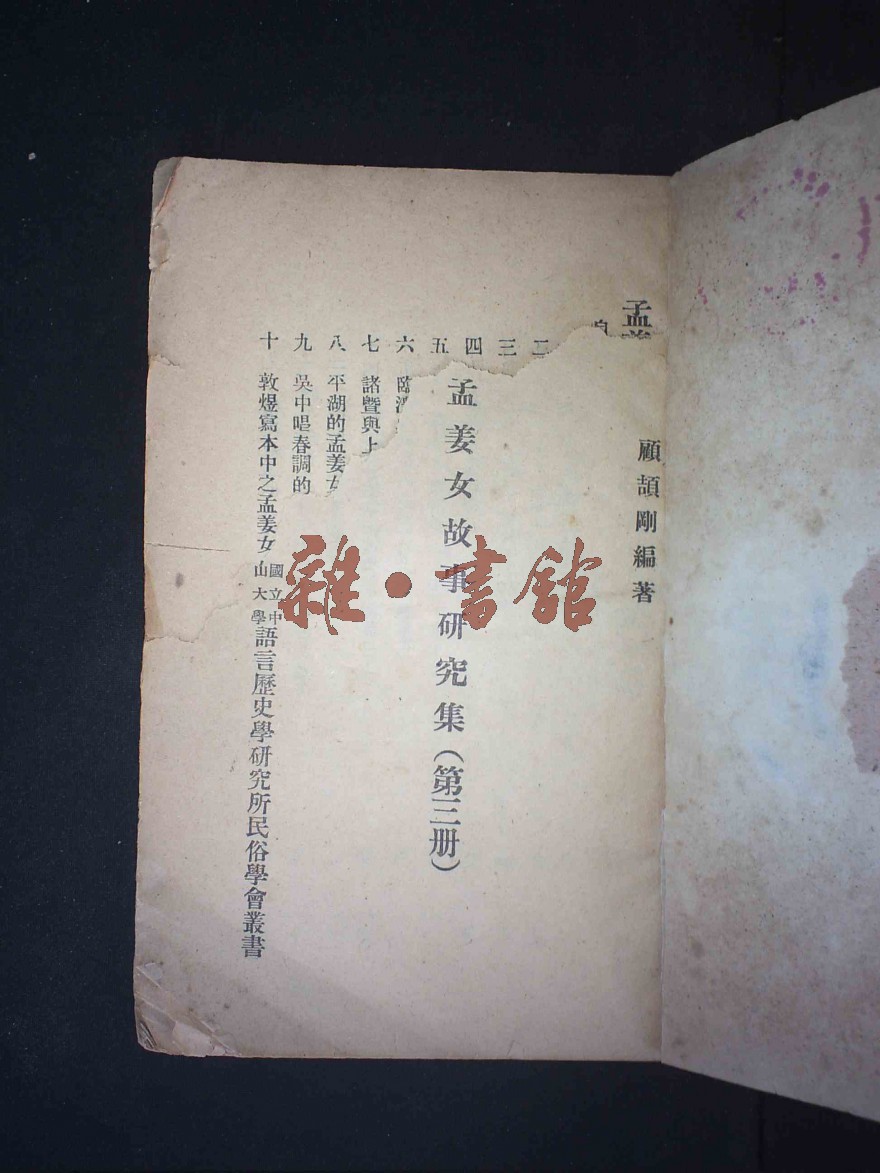 顧頡剛編著
孟姜女故事研究集（第三册）
國立中山大學語言歷史學研究所民俗學會叢書
孟
二
三
四
五
六
七 諸暨與上
八 平湖的孟姜女
九 吳中唱春調的
十 敦煌寫本中之孟姜女
雜·書館